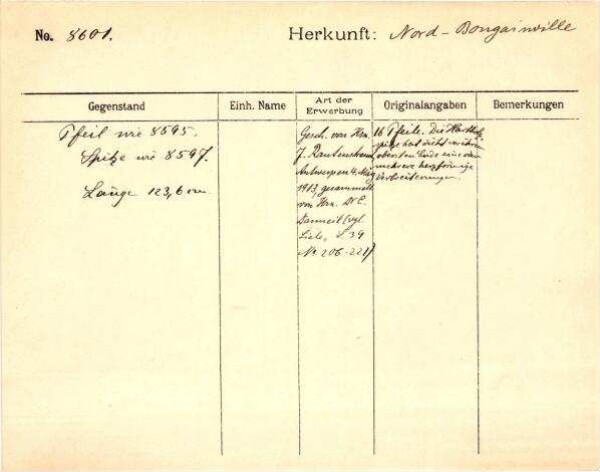 No. 8601. Herkunft: Nord-Bougainville
Gegenstand Einh. Name Art der Erwerbung Originalangaben Bemerkungen
Pfeil wie 8595.
Spitze wie 8597.
Länge 123,6 cm.
Gesch. von Hrn.
J. Rautenstrauch
Antwerpen 4. Mai
1913, gesammelt
von Hrn. Dr. E.
Danneil (vgl.
Liste, S 39
Nr. 206-221)
16 Pfeile. Die Hartholz
spitze hat dicht vor ihrem
obersten Ende eine oder
mehrere herzförmige
Verbreiterungen.